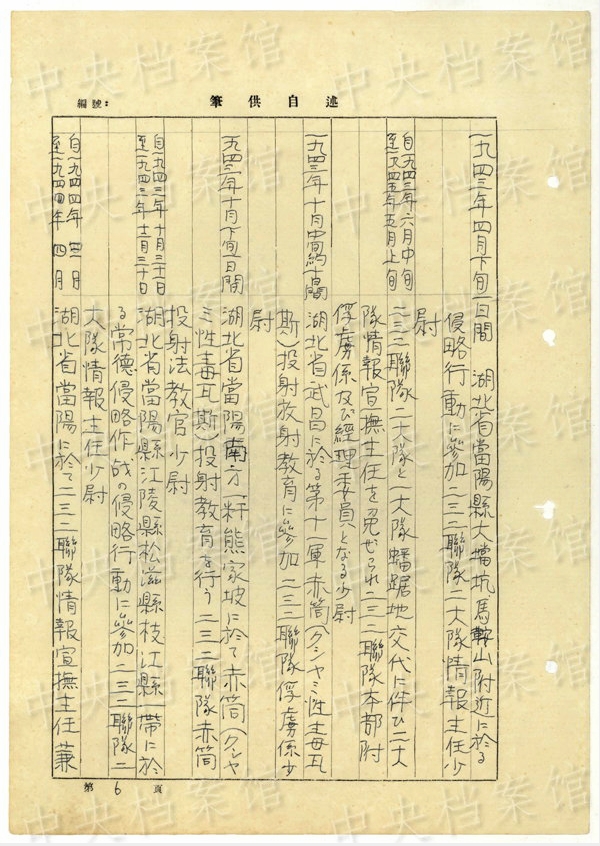 編號：
述自供筆
一九四三年四月下旬一日間　湖北省當陽縣大擋坑馬鞍山附近に於る
侵略行動に參加二三二聯隊二大隊情報主任少
尉
自一九四三年六月中旬
至一九四五年五月上旬
二三二聯隊二大隊と一大隊蟠踞地交代に伴ひ二大
隊情報宣撫主任を免ぜられ二三二聯隊本部附
俘虜係及び經理委員となる少尉
一九四三年十月中旬約十日間　湖北省武昌に於る第十一軍赤筒(クシャミ性毒瓦
斯)投射放射教育に參加二三二聯隊俘虜係少
尉
一九四三年十月下旬一日間
湖北省當陽南方一粁熊家坡に於て赤筒(クシャ
ミ性毒瓦斯)投射教育を行う二三二聯隊赤筒
投射法教官少尉
自一九四三年十月三十一日
至一九四三年十二月三十日
湖北省當陽縣江陵縣松滋縣枝江縣一帶に於
る常德侵略作战の侵略行動に參加二三二聯隊二
大隊情報主任少尉
自一九四四年 月
至一九四四年四月
湖北省當陽に於て二三二聯隊情報宣撫主任兼
第6頁
中央档案馆